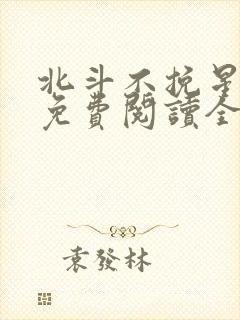 北斗不挽星
免費閱讀全
袁發林